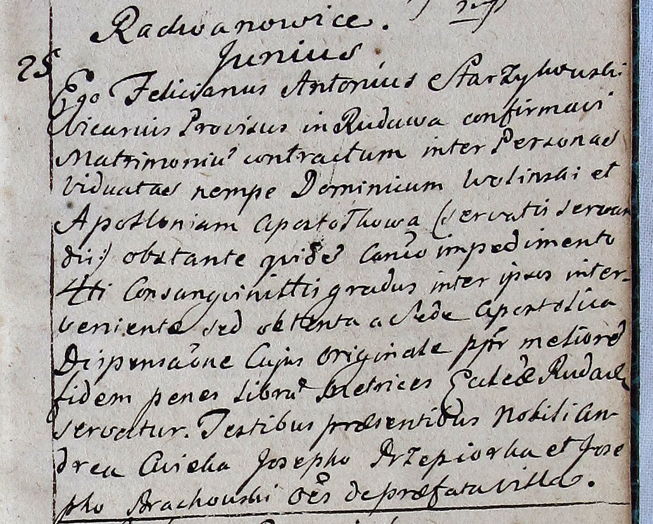 Radwanowice.
Junius
25 Ego Felicianus Antonius Starzykowski
Vicarius Provisus in Rudawa confirmavi
Matrimoniū contractum inter Personas
viduatas nempe Dominicum Wolinski et
Apolloniam Apostołkowa (servatis servan
dis) obstante quidē Canco impedimento
4ti Consanguinittis gradus inter ipsos inter-
veniente sed obtenta a Sede Apostolica
Dispensaōne Cujus originale pptr meliorē
fidem penes librū Metrices Eccleæ Rudav
servatur. Testibus præsentibus Nobili An-
drea Cwieka Josepho Przepiorka et Jose
pho Brachowski oēs de præfata villa.